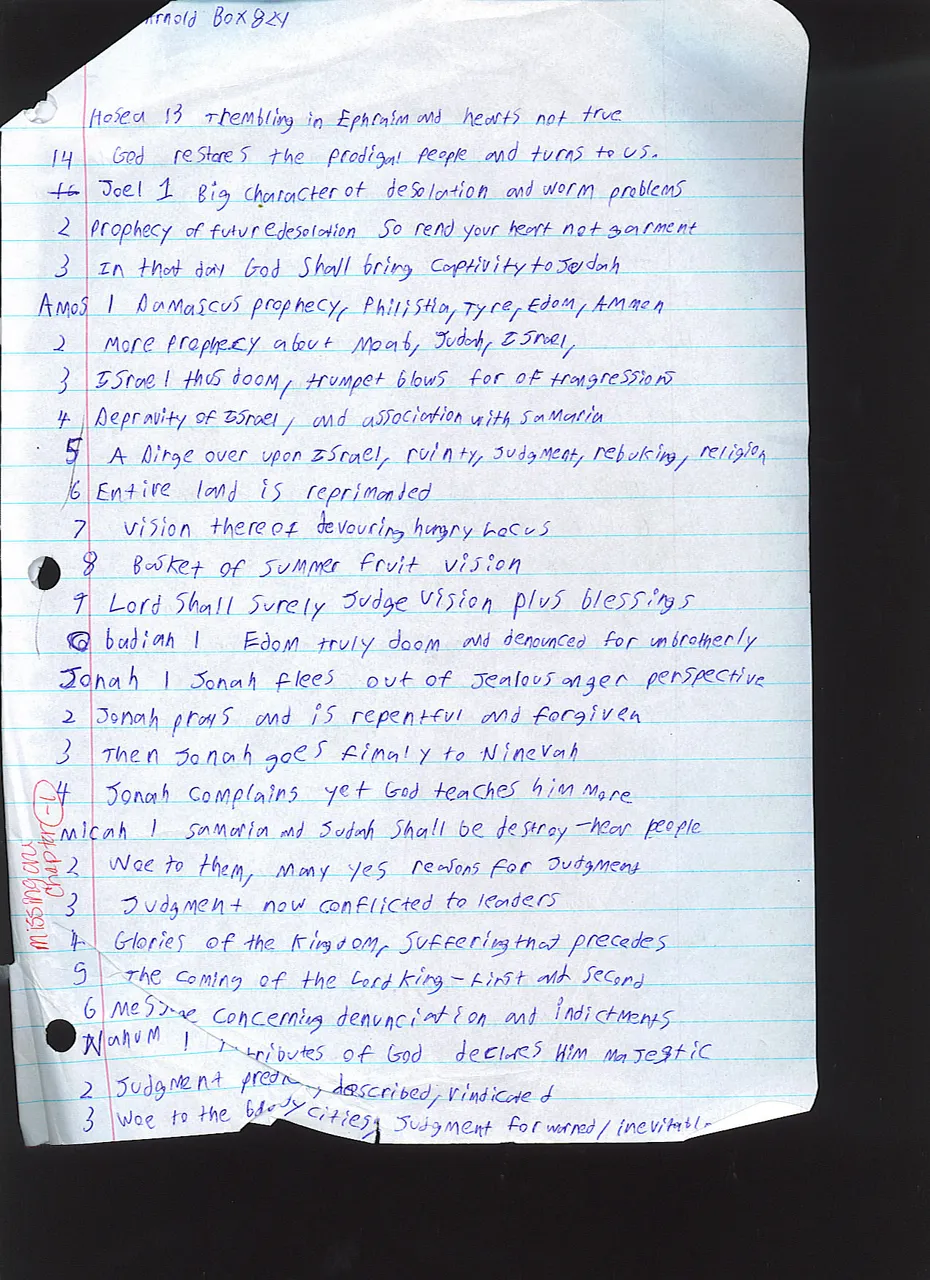 Arnold Box 824
Hosea 13 Trembling in Ephraim and hearts not true
14 God restores the prodigal people and turns to us.
Joel 1 Big character of desolation and worm problems
2 Prophecy of future desolation So rend your heart not garment
3 In that day God Shall bring Captivity to Jeydah
Amos 1 Damascus prophecy, Philistia, Tyre, Edom, Ammen
2 More prophecy about Moab, Judah, Israel,
3 Israel thus doom, trumpet blows for of trangressions
4 Depravity of Israel, and association with Samaria
5 A Dirge over upon Israel, ruinty, Judgment, rebuking, religion
6 Entire land is reprimanded
7 Vision thereof devouring hungry Locus
8 Basket of summer fruit vision
9 Lord Shall Surely Judge Vision plus blessings
Obadiah 1 Edom truly doom and denounced for unbrotherly
Jonah 1 Jonah flees out of Jealous anger perspective
2 Jonah prays and is repentful and forgiven
3 Then Jonah goes finaly to Ninevah
4 Jonah Complains yet God teaches him more
Micah 1 Samaria and Judah Shall be destroy - hear people
2 Woe to them, many yes reasons for Judgment
3 Judgment now conflicted to leaders
4 Glories of the Kingdom, Suffering that precedes
5 The coming of the Lord King - First and Second
6 concerning denunciation and indictments
Nahum 1 tributes of God declares Him Majestic
2 Judgment described, vindicated
3 Woe to the bloody cities, Judgment for warned / inevitabl
missing one
Chapter -1